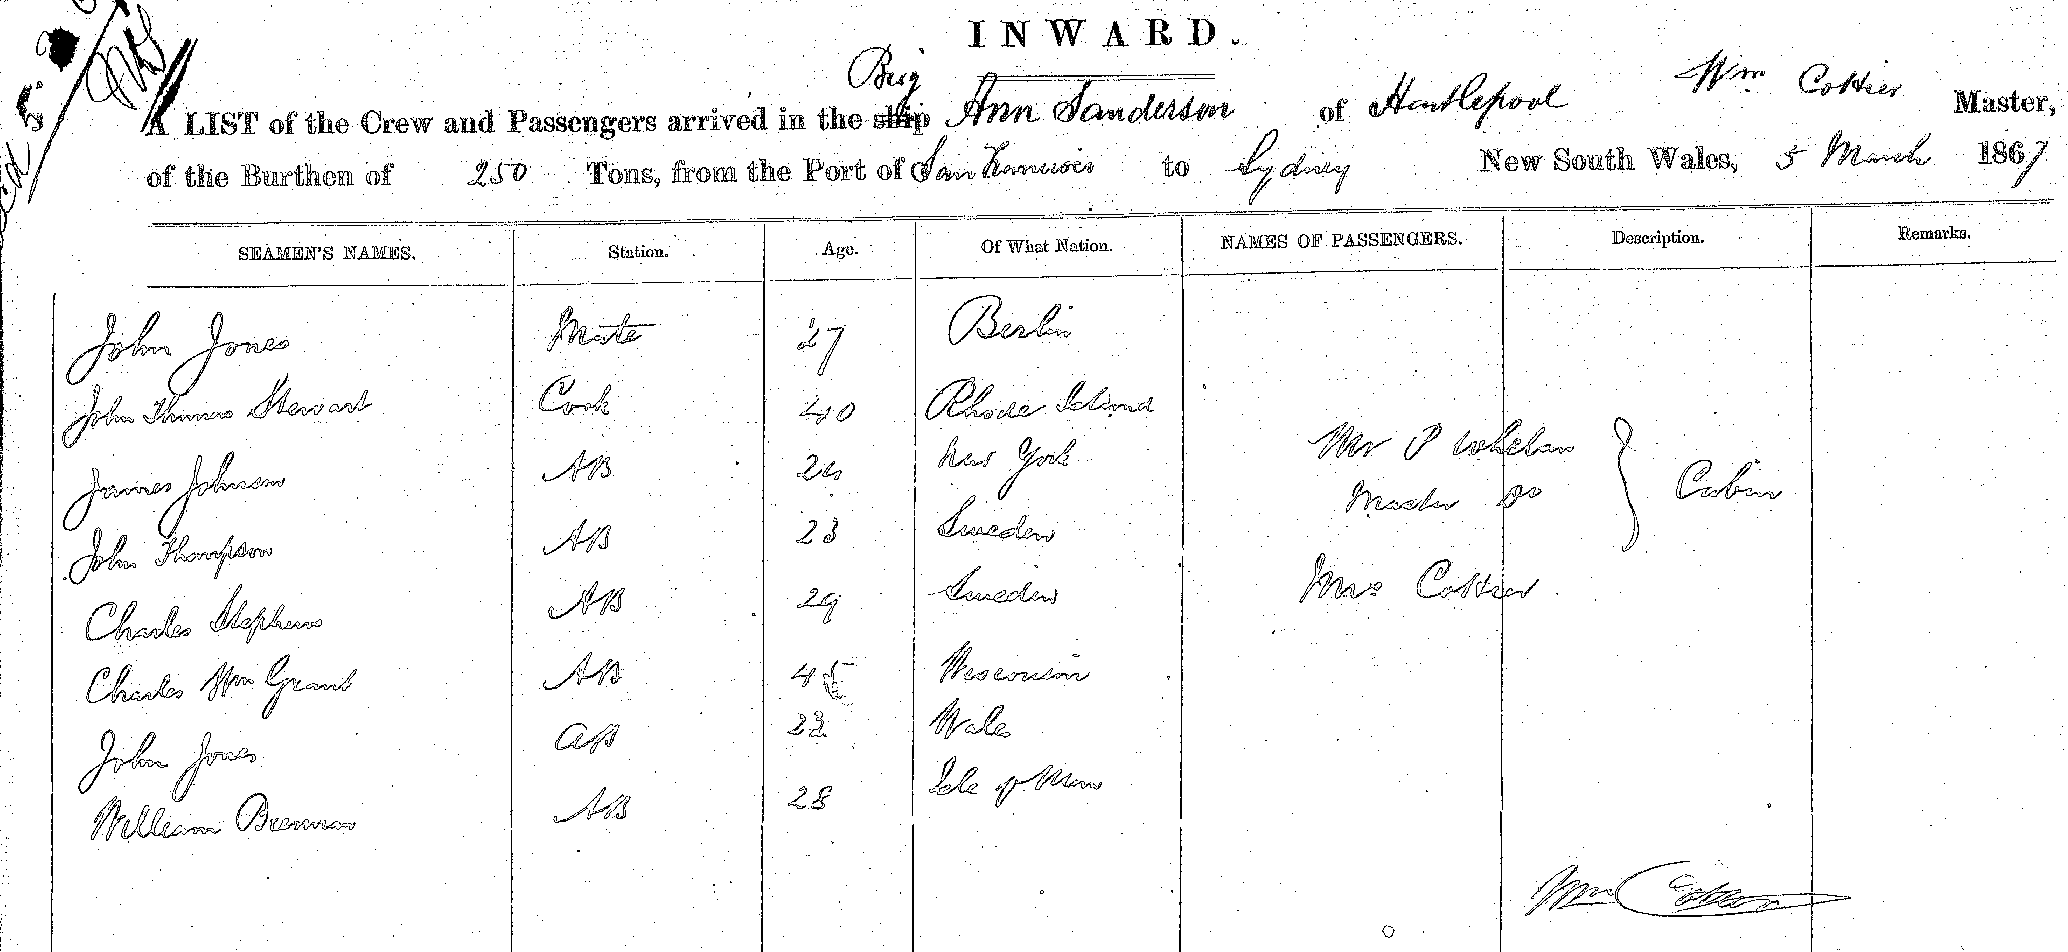 INWARD.
Brig
A LIST of the Crew and Passengers arrived in the ship Ann Sanderson of Hartlepool Wm Cottier Master,
of the Burthen of 250 Tons, from the Port of San Francisco to Sydney New South Wales, 5 March 1867
SEAMEN'S NAMES. Station. Age. Of What Nation. NAMES OF PASSENGERS. Description. Remarks.
John Jones Mate 27 Berlin
John Thomas Stewart Cook 40 Rhode Island
James Johnson AB 24 New York Mr P Whelan
Master Do Cabin
John Thompson AB 23 Sweden
Charles Stephens AB 29 Sweden Mrs Cottier
Charles Wm Grant AB 45 Wesconsin
John Jones AB 22 Wales
William Brennan AB 28 Isle of Man
Wm Cottier